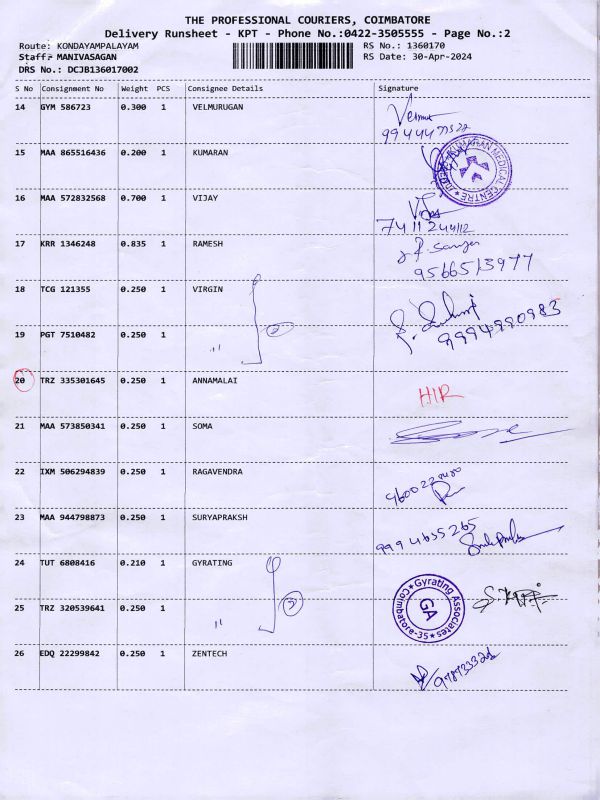 THE PROFESSIONAL COURIERS, COIMBATORE
Delivery Runsheet - KPT - Phone No.:0422-3505555 - Page No.:2
Route: KONDAYAMPALAYAM RS No.: 1360170
Staff: MANIVASAGAN RS Date: 30-Apr-2024
DRS No.: DCJB136017002
S No Consignment No Weight PCS Consignee Details Signature
14 GYM 586723 0.300 1 VELMURUGAN
15 MAA 865516436 0.200 1 KUMARAN
KUMARAN MEDICAL CENTRE
16 MAA 572832568 0.700 1 VIJAY
17 KRR 1346248 0.835 1 RAMESH
9566513977
18 TCG 121355 0.250 1 VIRGIN
19 PGT 7510482 0.250 1 "
9994990983
20 TRZ 335301645 0.250 1 ANNAMALAI
21 MAA 573850341 0.250 1 SOMA
22 IXM 506294839 0.250 1 RAGAVENDRA
23 MAA 944798873 0.250 1 SURYAPRAKSH
9994655265
24 TUT 6808416 0.210 1 GYRATING
Gyrating Associates
GA
Coimbatore-35
25 TRZ 320539641 0.250 1 "
26 EDQ 22299842 0.250 1 ZENTECH